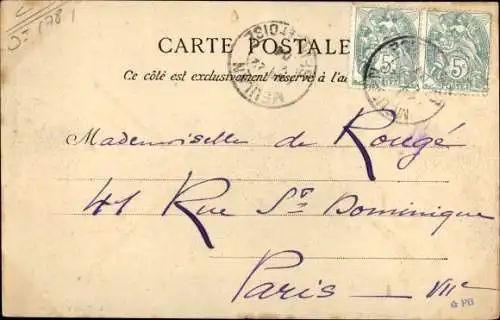 CARTE POSTALE
Ce côté est exclusivement réservé à l'a
Mademoiselle de Rougé
41 Rue St Dominique
Paris — VIIe
5c
5c
MEULAN
PB